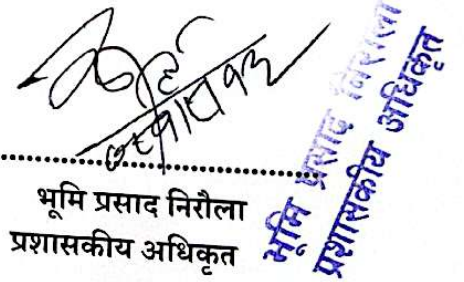 भूमि प्रसाद निरौला
प्रशासकीय अधिकृत
भूमि प्रसाद निरौला
प्रशासकीय अधिकृत